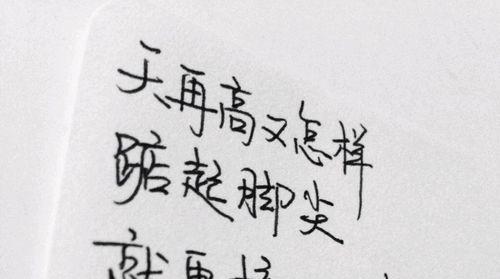 天再高又怎样
踮起脚尖
就更接